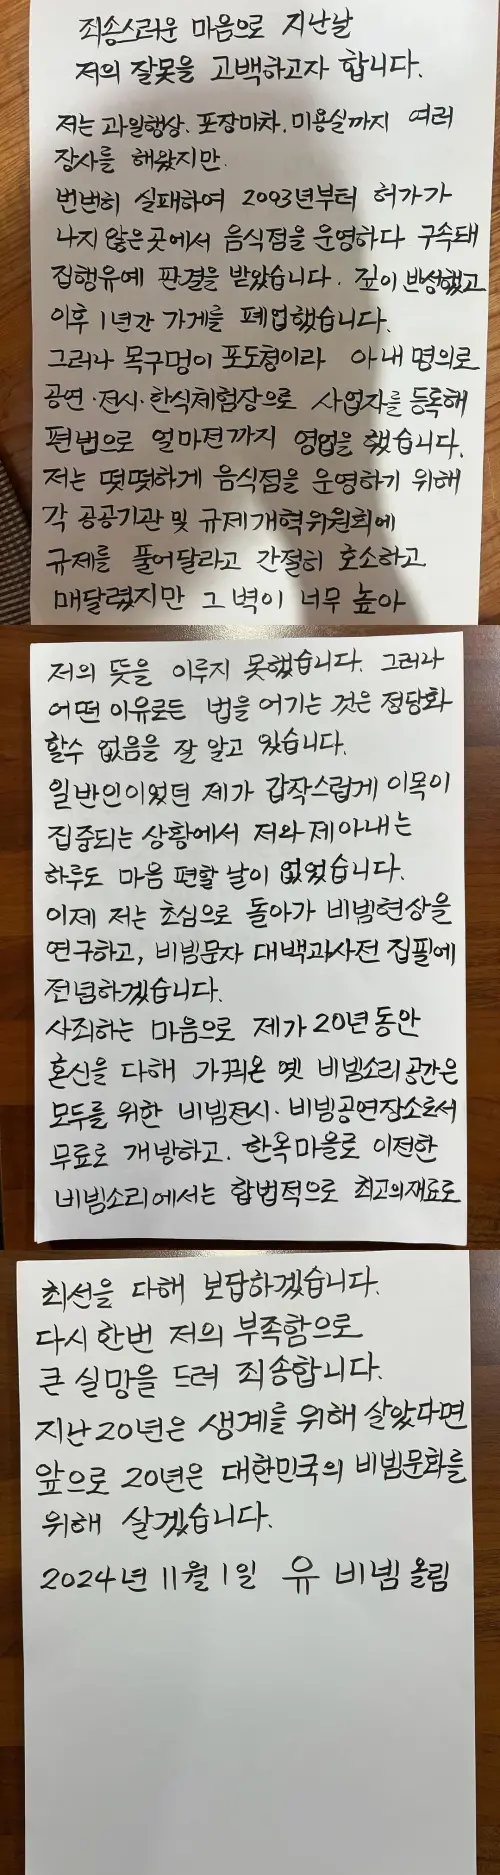 죄송스러운 마음으로 지난날
저의 잘못을 고백하고자 합니다.
저는 과일행상. 포장마차. 미용실까지 여러
장사를 해왔지만
번번히 실패하여 2003년부터 허가가
나지 않은 곳에서 음식점을 운영하다 구속돼
집행유예 판결을 받았습니다. 깊이 반성했고
이후 1년간 가게를 폐업했습니다.
그러나 목구멍이 포도청이라 아내 명의로
공연·전시·한식체험장으로 사업자를 등록해
편법으로 얼마전까지 영업을 했습니다.
저는 떳떳하게 음식점을 운영하기 위해
각 공공기관 및 규제개혁위원회에
규제를 풀어달라고 간절히 호소하고
매달렸지만 그 벽이 너무 높아
저의 뜻을 이루지 못했습니다. 그러나
어떤 이유로든 법을 어기는 것은 정당화
할수 없음을 잘 알고 있습니다.
일반인이었던 제가 갑작스럽게 이목이
집중되는 상황에서 저와 제아내는
하루도 마음 편할 날이 없었습니다.
이제 저는 초심으로 돌아가 비빔현상을
연구하고, 비빔문자 대백과사전 집필에
전념하겠습니다.
사죄하는 마음으로 제가 20년동안
혼신을 다해 가꿔온 옛 비빔소리 공간은
모두를 위한 비빔전시·비빔공연장소로서
무료로 개방하고. 한옥마을로 이전한
비빔소리에서는 합법적으로 최고의재료로
최선을 다해 보답하겠습니다.
다시 한번 저의 부족함으로
큰 실망을 드려 죄송합니다.
지난 20년은 생계를 위해 살았다면
앞으로 20년은 대한민국의 비빔문화를
위해 살겠습니다.
2024년 11월 1일 유 비빔 올림